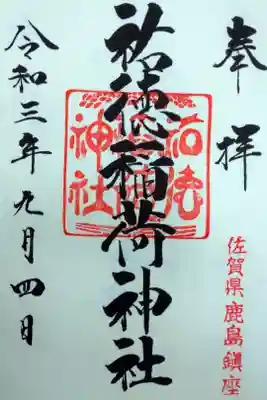 奉拝
佐賀県鹿島鎮座
祐徳稲荷神社
祐徳神社
令和三年九月四日